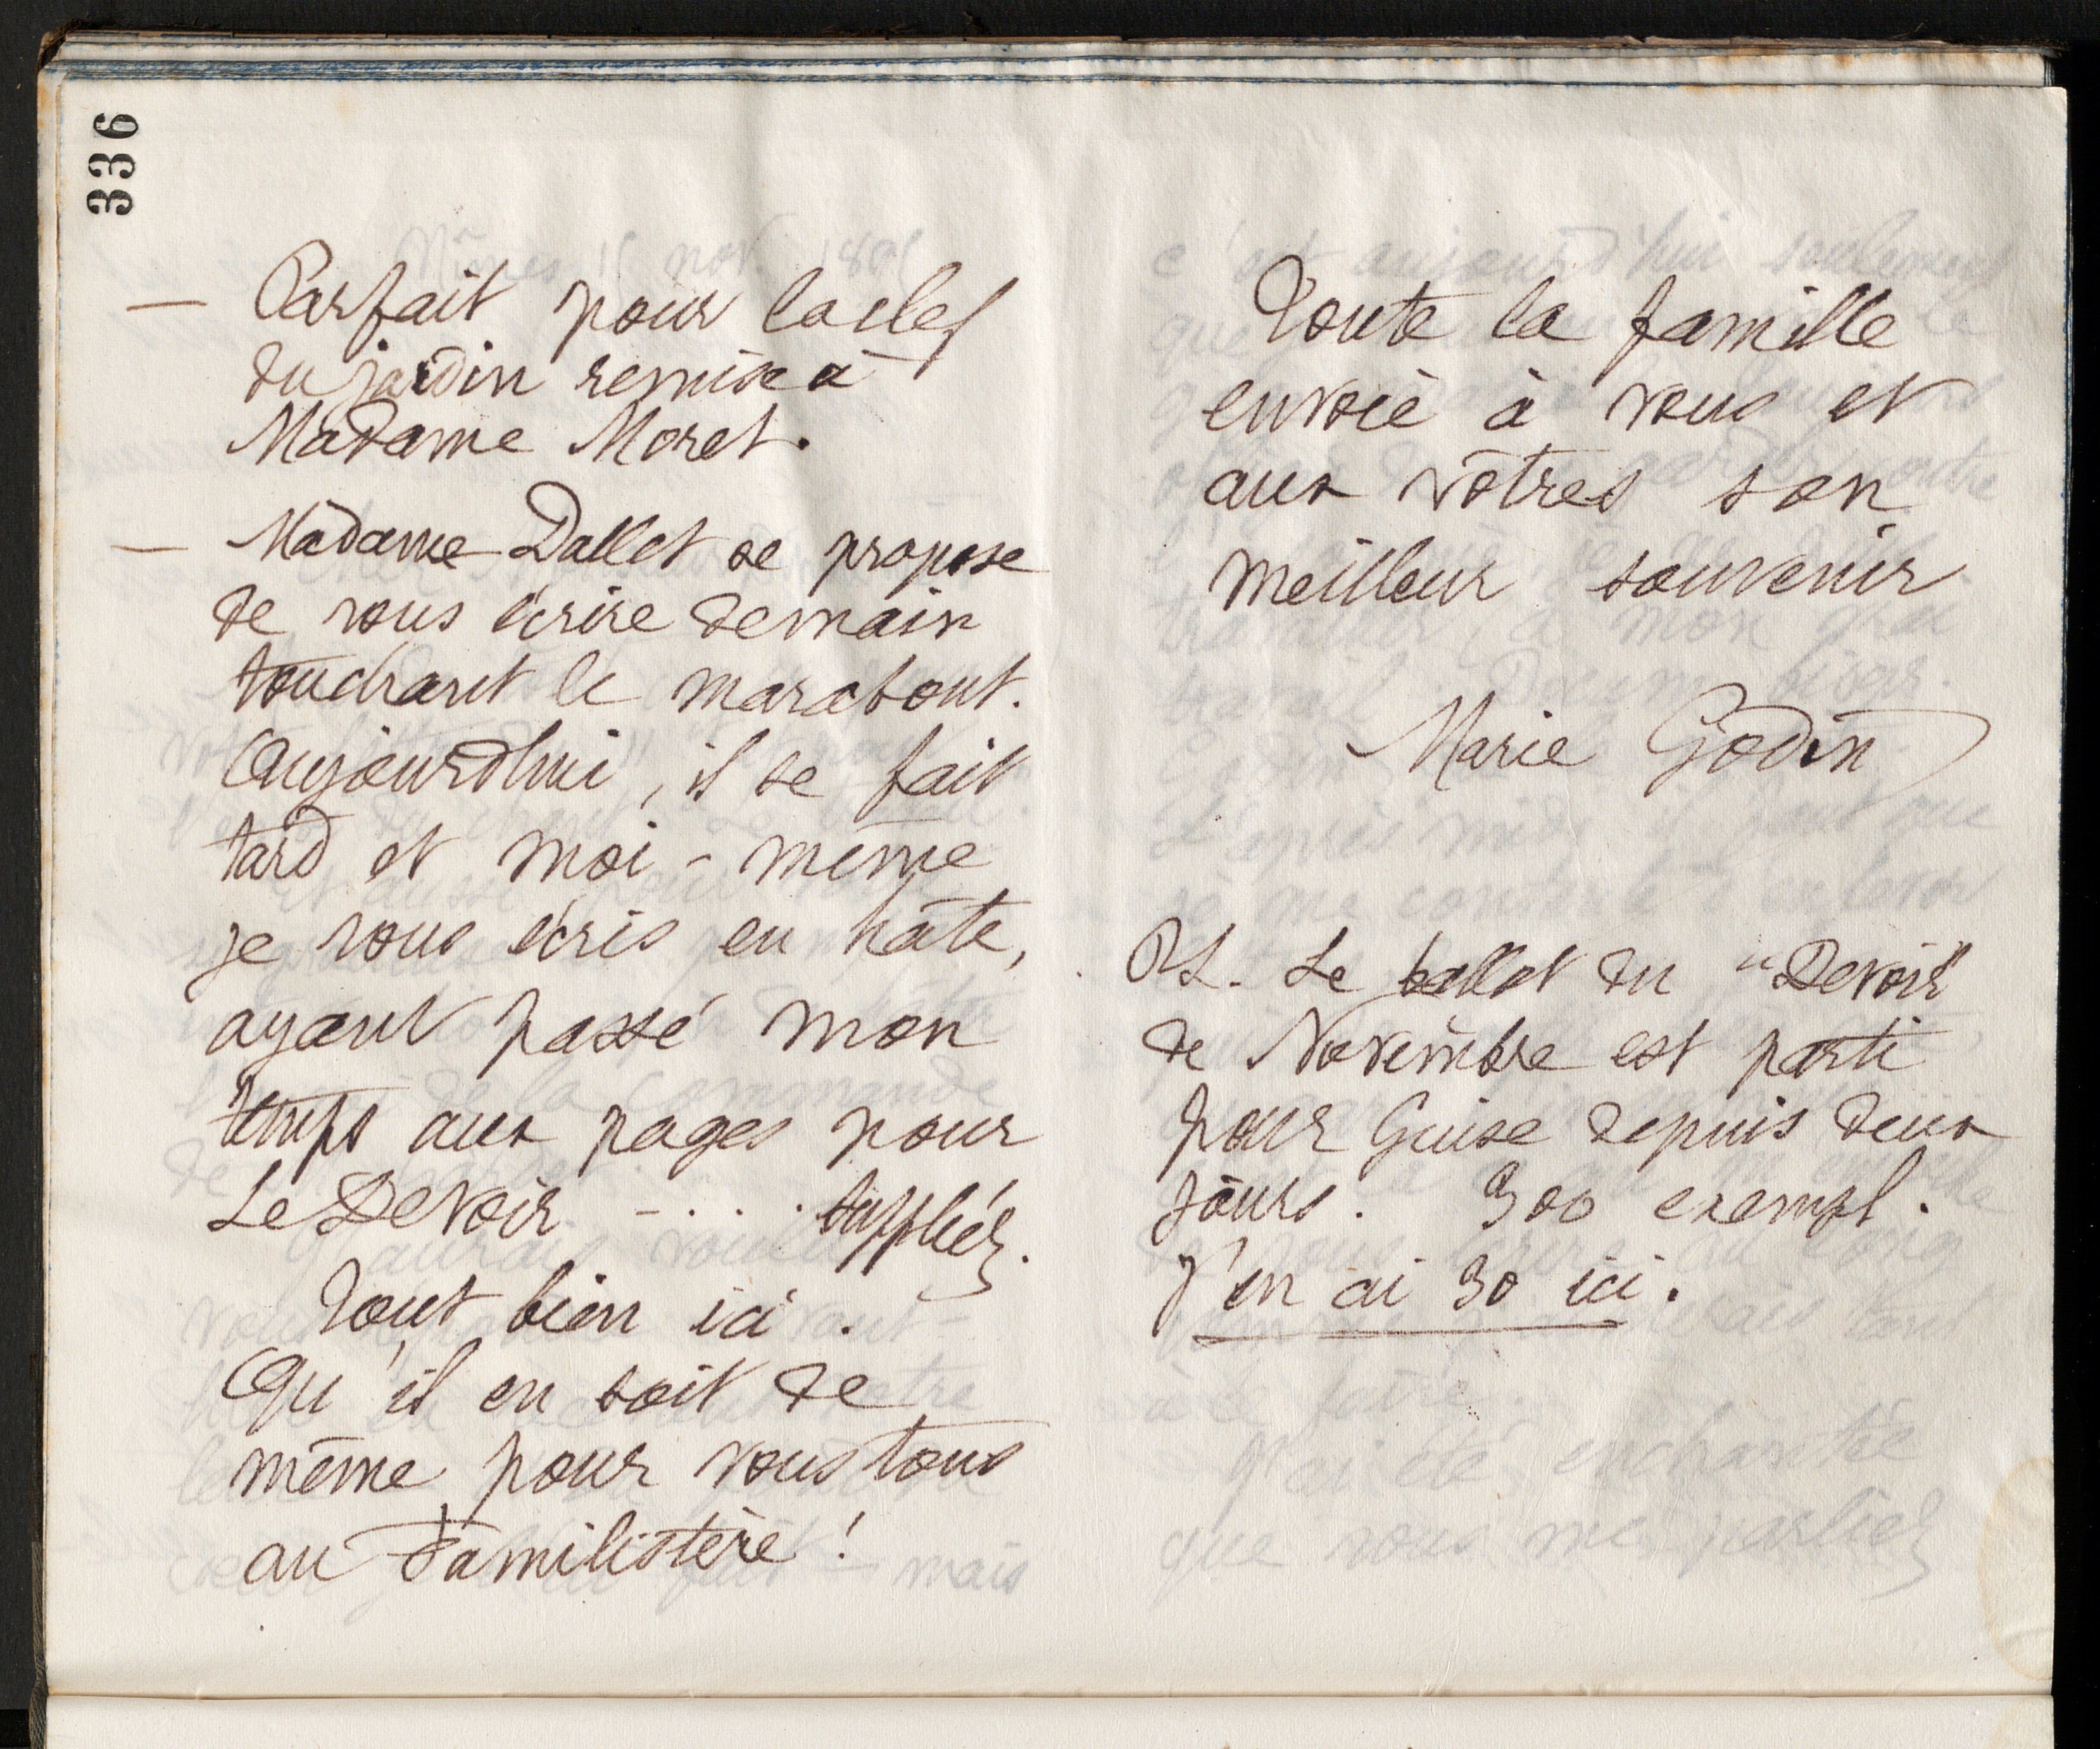 336
— Parfait pour la clef
du jardin remise à
Madame Moret.
— Madame Dallet se propose
de vous écrire demain
touchant le marabout.
Aujourdhui, il se fait
tard et moi-même
je vous écris en hâte,
ayant passé mon
temps aux pages pour
Le Devoir - . . . suppléez.
Tout bien ici.
Qu'il en soit de
même pour vous tous
au Familistère !
Toute la famille
envoie à vous et
aux vôtres son
meilleur souvenir
Marie Godin
PS. Le ballot du "Devoir"
de Novembre est parti
pour Guise depuis deux
jours. 300 exempl.
J'en ai 30 ici.